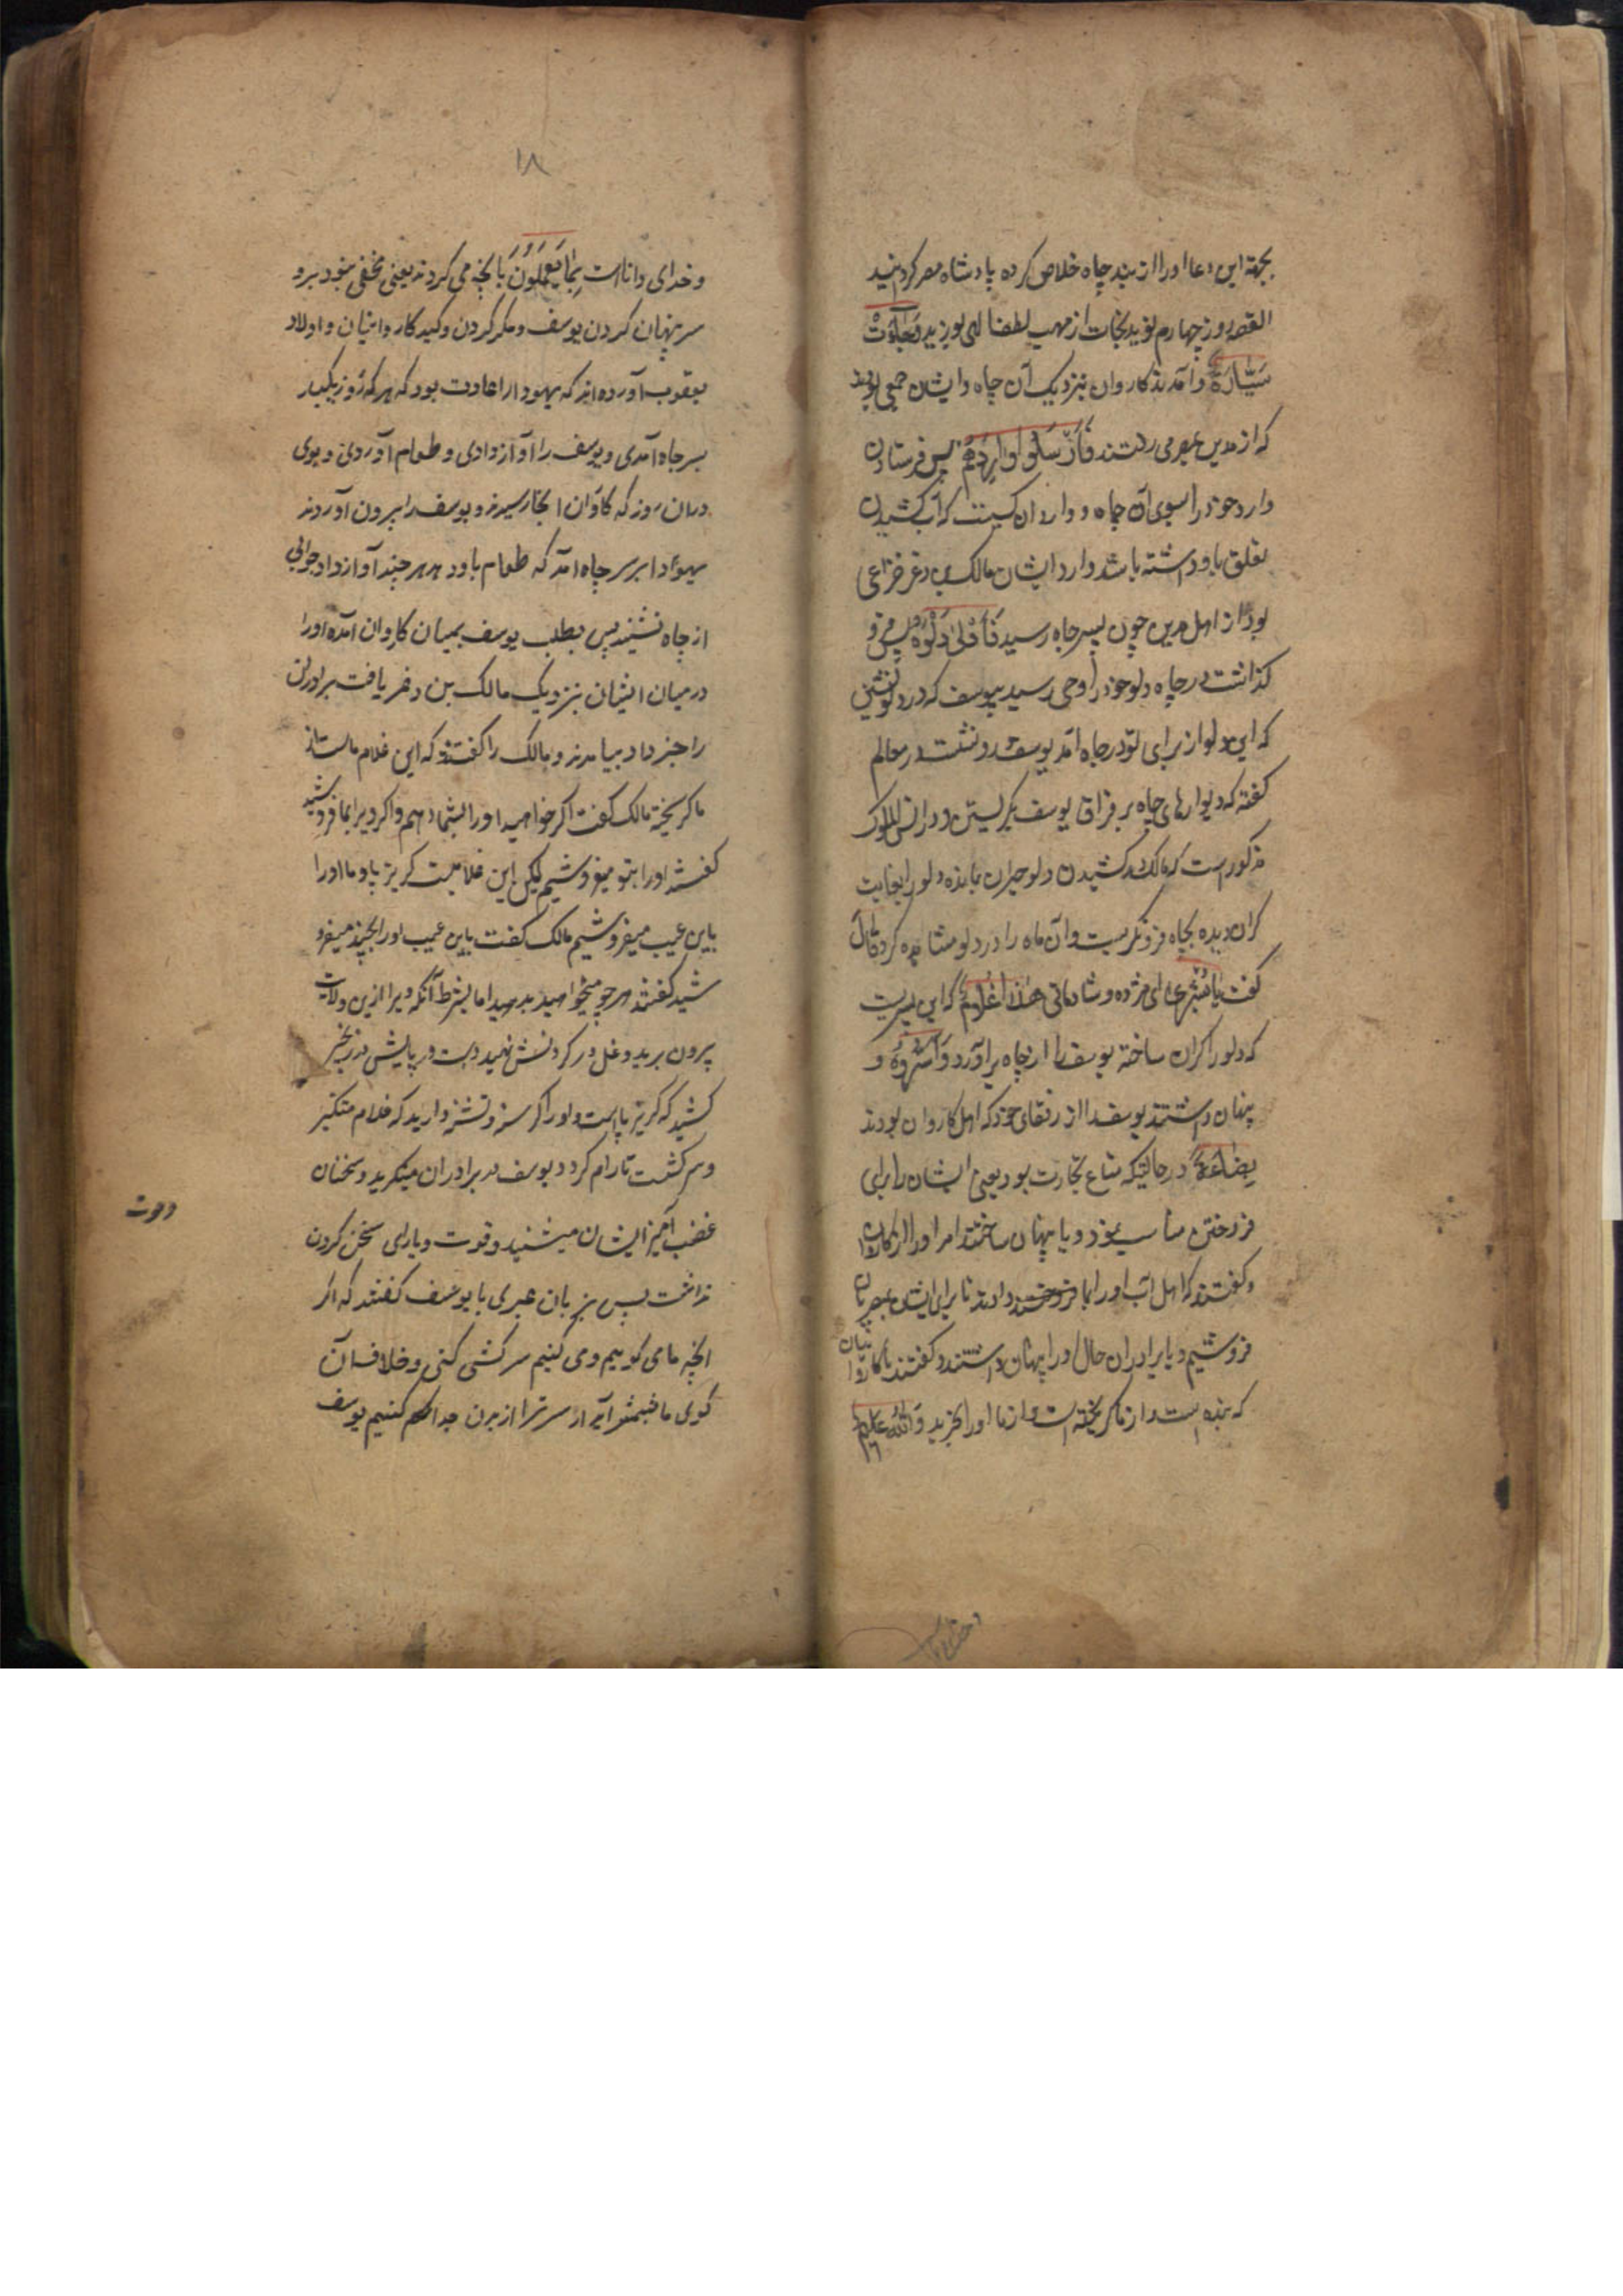 بجهة این دعا اورا از بند چاه خلاص کرده پادشاه مصر کردانید
القصه روز چهارم نوید نجات از مهب لطف الهی بوزید وَجَاءَتْ
سَیَّارَةٌ و آمدند کاروان نزدیک آن چاه و ایشان جمعی بودند
که از مدین بمصر می رفتند فَاَرْسَلُوا وَارِدَهُمْ پس فرستادن
وارد خود را بسوی آن چاه و وارد آن کیست که آب کشیدن
تعلق باو داشته باشد و وارد ایشان مالک بن دغر خزاعی
بود از اهل مدین چون بسر چاه رسید فَاَدْلیٰ دَلْوَهُ پس فرو
کذاشت در چاه دلو خود را وحی رسید بیوسف که در دلو نشین
که این دلو از برای تو در چاه آمد یوسف در معالم
کفته که دیوارهای چاه بر فراق یوسف بکریستن و در انیس الملوک
مذکور است که مالک در کشیدن دلو حیران بمانده دلو را بغایت
کران دیده بچاه فرو نکریست و آن ماه را در دلو مشاهده کرد قَالَ
کفت یَا بُشْریٰ ای مژده و شادمانی هٰذَا غُلَامٌ که این پسریست
که دلو را کران ساخته یوسف را از چاه بر آورد وَاَسَرُّوهُ و
پنهان داشتند یوسف را از رفقای خود که اهل کاروان بودند
بِضَاعَةً در حالتیکه متاع تجارت بود یعنی ایشان را برای
فروختن مناسب نمود و یا پنهان ساختند امر اورا از کاروان
و کفتند که اهل آب اورا بما دادند تا برای ایشان بمصریان
فروشیم و یا برادران حال اورا پنهان داشتند و کفتند با کاروانیان
که بنده ایست و از ما کریخته است و از ما اورا بخرید وَاللهُ عَلِیمٌ
۱۸
و خدای داناست بِمَا یَعْمَلُونَ بآنچه می کردند یعنی مخفی نبود برو
سر پنهان کردن یوسف و مکر کردن و کید کاروانیان و اولاد
یعقوب آورده اند که یهودا را عادت بود که هر که روز یکبار
بسر چاه آمدی و یوسف را آواز دادی و طعام آوردی و بوی
در آن روز که کاروان آنجا رسیدند و یوسف را بیرون آوردند
یهودا بر سر چاه آمد که طعام باو دهد هر چند آواز داد جوابی
از چاه نشنید پس بطلب یوسف بمیان کاروان آمده اورا
در میان ایشان نزدیک مالک بن دغر یافت برادران
را خبر داد بیامدند و مالک را کفتند که این غلام ماست از
ما کریخته مالک کفت اکر خواهید اورا بشما دهم و اکر ویرا بما فروشید
کفتند اورا بتو میفروشیم لیکن این غلامیست کریز پا و ما اورا
باین عیب میفروشیم مالک کفت باین عیب اورا بچند میفرو
شید کفتند هر چه میخواهید بدهید اما بشرط آنکه ویرا ازین ولایت
بیرون برید و غل در کردنش نهید و دست و پایش در زنجیر
کشید که کریز پا است و اورا کرسنه و تشنه دارید که غلام متکبر
و سرکش است تا رام کردد یوسف در برادران مینکرید و سخنان
غضب آمیز ایشان میشنید و قوت و یارای سخن کردن
نداشت پس بزبان عبری با یوسف کفتند که اکر
آنچه ما می کوییم و می کنیم سرکشی کنی و خلاف آن
کوی ما سر ترا از بدن جدا کنیم یوسف